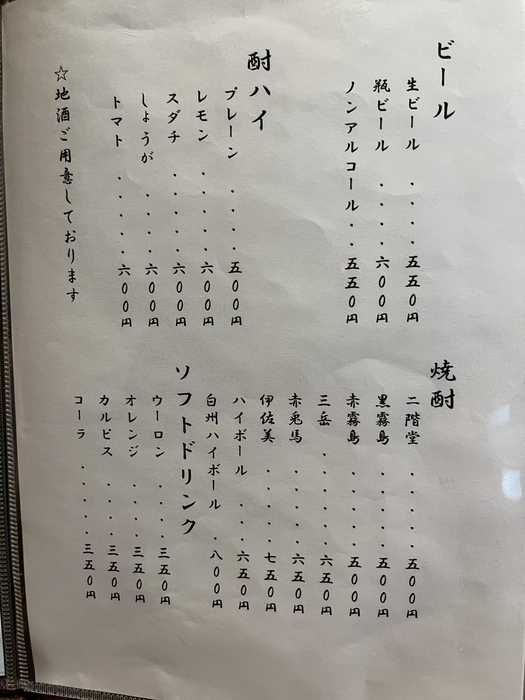 ビール
生ビール・・・・五五〇円
瓶ビール・・・・六〇〇円
ノンアルコール・・五五〇円
酎ハイ
プレーン・・・・五〇〇円
レモン・・・・・六〇〇円
スダチ・・・・・六〇〇円
しょうが・・・・六〇〇円
トマト・・・・・六〇〇円
☆地酒ご用意しております
焼酎
二階堂・・・・・五〇〇円
黒霧島・・・・・五〇〇円
赤霧島・・・・・五〇〇円
三岳・・・・・・六五〇円
赤兎馬・・・・・六五〇円
伊佐美・・・・・七五〇円
ハイボール・・・六五〇円
白州ハイボール・八〇〇円
ソフトドリンク
ウーロン・・・・三五〇円
オレンジ・・・・三五〇円
カルピス・・・・三五〇円
コーラ・・・・・三五〇円